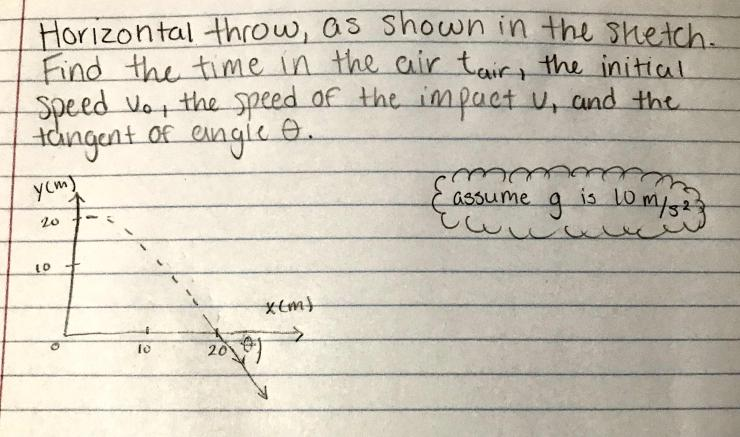 Horizontal throw, as shown in the sketch.
Find the time in the air tair, the initial
speed vo, the speed of the impact v, and the
tangent of angle θ.
assume g is 10 m/s²
y(m)
20
10
x(m)
0
10
20
θ